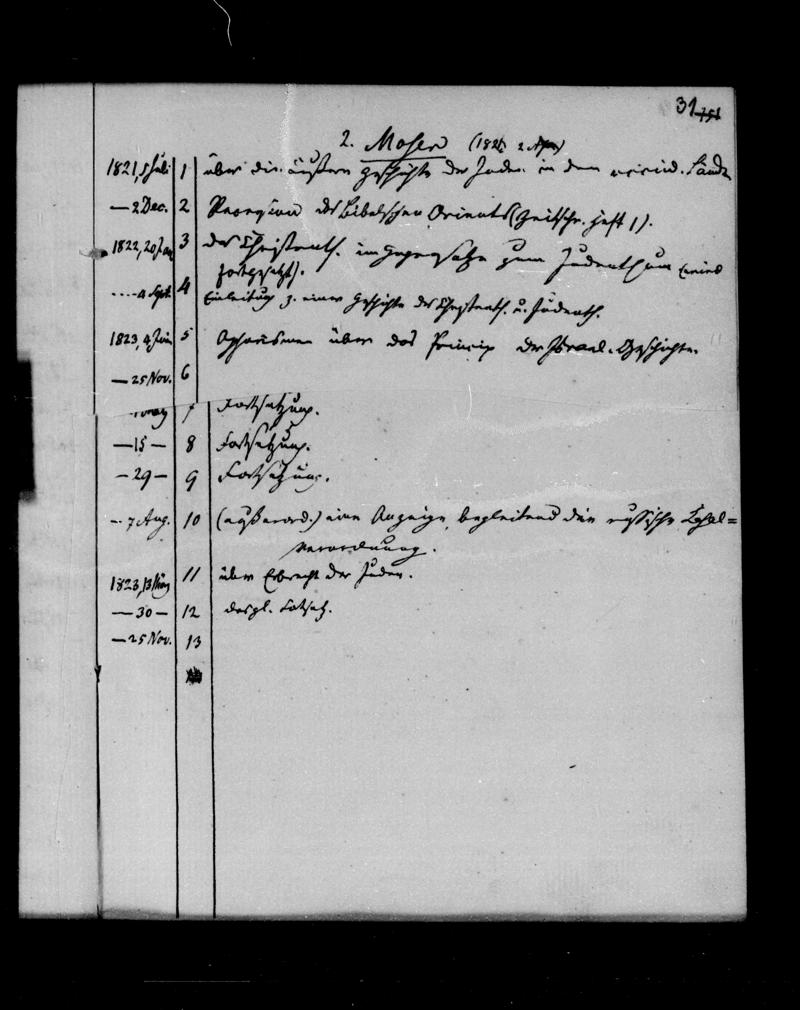 31 151
2. Moser (1821 2 Apr)
1821, 5 Juli 1 über die äußere Geschichte der Juden in den verschied. Länder
— 2 Dec. 2 Recension des Bibelschen Orients (Zeitschr. Heft 1).
1822, 20 Jan 3 das Christenth. im Gegensatze zum Judenthum
fortgesetzt).
4 Sept. 4 Einleitung z. einer Geschichte des Christenth. u. Judenth.
1823, 4 Juni 5 Aphorismen über das Princip der Israel. Geschichte.
— 25 Nov. 6
7 Fortsetzung.
— 15 — 8 Fortsetzung.
— 29 — 9 Fortsetzung.
— 7 Aug. 10 (außerord.) eine Anzeige, begleitend die russische Lokal=
verordnung.
1823, 13 März 11 über Erbrecht der Juden.
— 30 — 12 desgl. Fortsetz.
— 25 Nov. 13